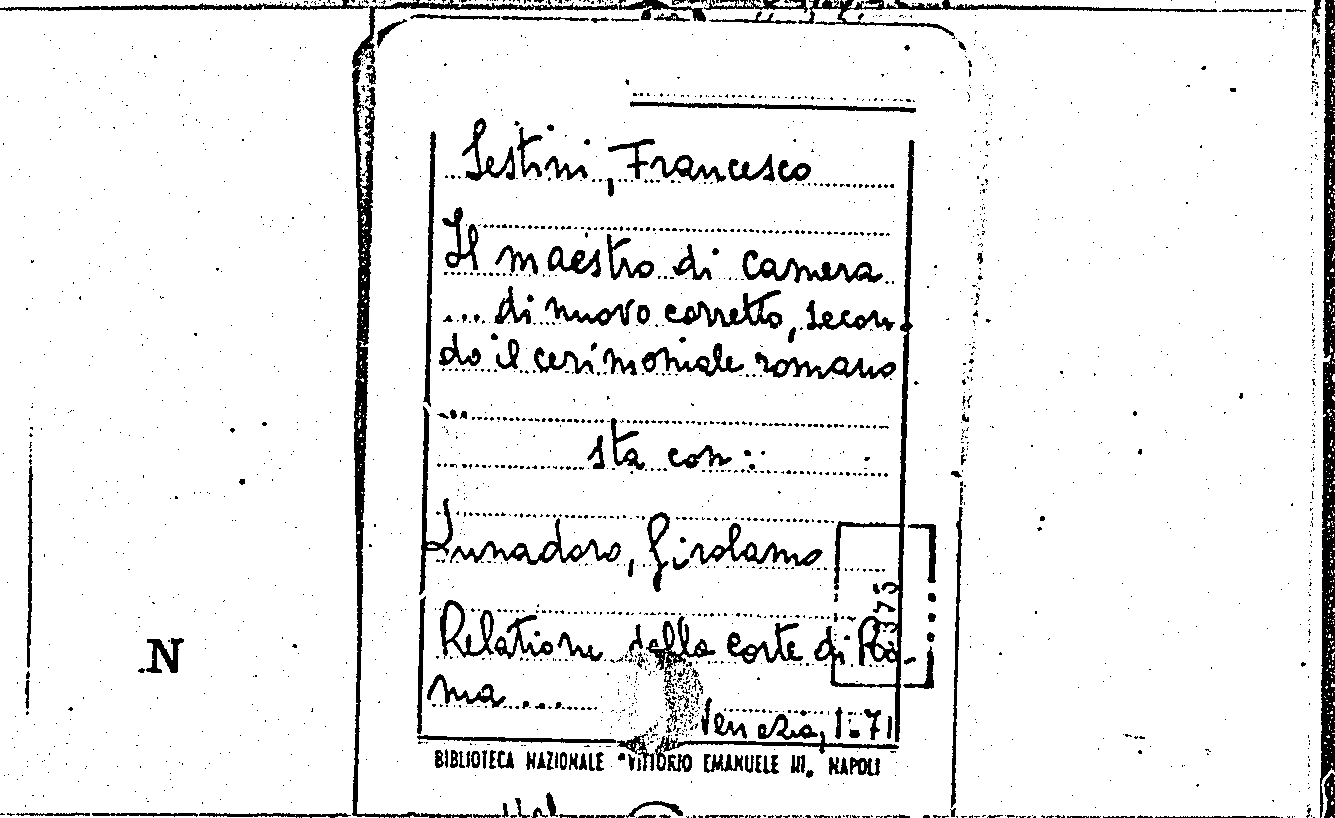 Sestini, Francesco
Il maestro di camera
... di nuovo corretto, secon-
do il cerimoniale romano
...
sta con:
Lunadoro, Girolamo
Relatione della corte di Ro-
ma ...
Venezia, 1.71
BIBLIOTECA NAZIONALE "VITTORIO EMANUELE III" NAPOLI
N